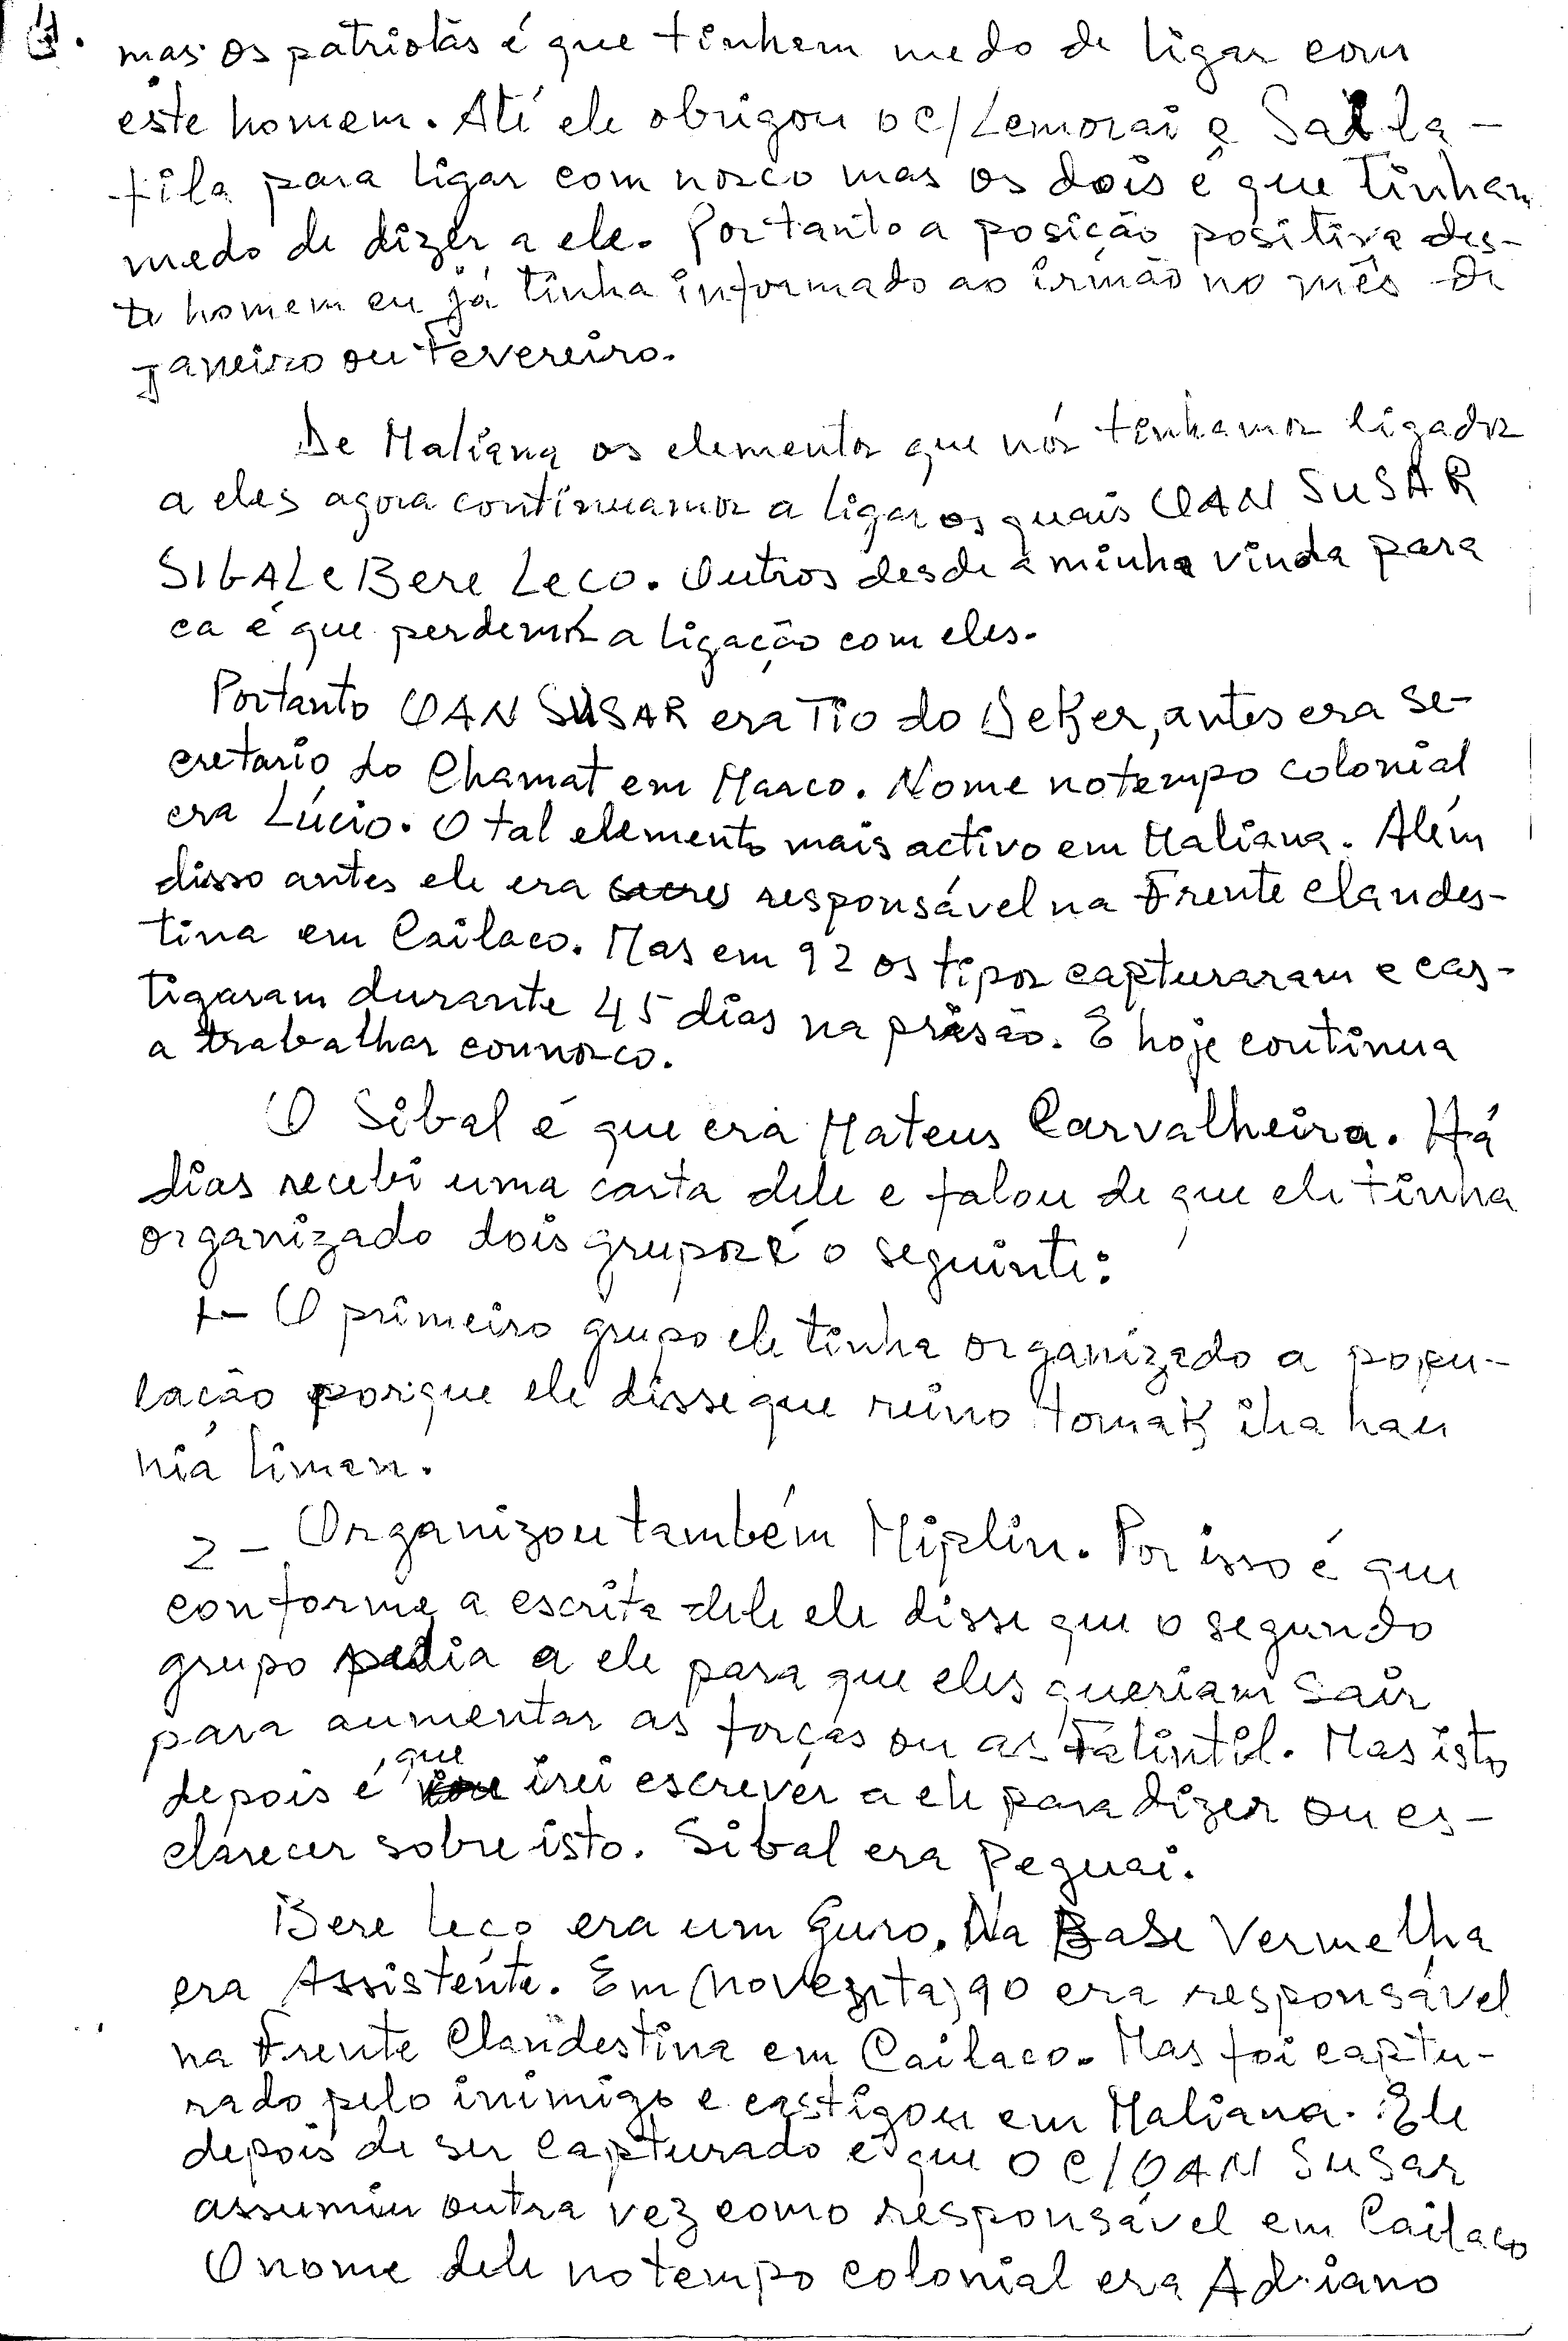 mas os patriotas é que tinham medo de ligar com
este homem. Até ele obrigou o C/Lemorai e Salla-
fila para ligar com nosco mas os dois é que tinham
medo de dizer a ele. Portanto a posição positiva des-
te homem eu já tinha informado ao irmão no mês de
Janeiro ou Fevereiro.
De Maliana os elementos que nós tinhamos ligados
a eles agora continuamos a ligar os quais OAN SUSAR
SIBAL e Bere Leço. Outros desde a minha vinda para
ca é que perdemos a ligação com eles.
Portanto OAN SUSAR era Tio do Deker, antes era se-
cretario do Chamat em Marco. Nome no tempo colonial
era Lúcio. O tal elemento mais activo em Maliana. Além
disso antes ele era responsável na Frente clandes-
tina em Cailaco. Mas em 92 os tipos capturaram e cas-
tigaram durante 45 dias na prisão. E hoje continua
a trabalhar connosco.
O Sibal é que era Mateus Carvalheira. Há
dias recebi uma carta dele e falou de que ele tinha
organizado dois grupos é o seguinte:
1- O primeiro grupo ele tinha organizado a popu-
lação porque ele disse que reino tomak iha hau
nia liman.
2 - Organizou também Hiplin. Por isso é que
conforme a escrita dele ele disse que o segundo
grupo pedia a ele para que eles queriam sair
para aumentar as forças ou as Falintil. Mas isto
depois é que irei escrever a ele para dizer ou es-
clarecer sobre isto. Sibal era Peguai.
Bere leço era um Guro. Na Base Vermelha
era Assistente. Em (noventa) 90 era responsável
na Frente Clandestina em Cailaco. Mas foi captu-
rado pelo inimigo e castigou em Maliana. Ele
depois de ser capturado é que o C/OAN SUSAR
assumiu outra vez como responsável em Cailaco
O nome dele no tempo colonial era Adriano